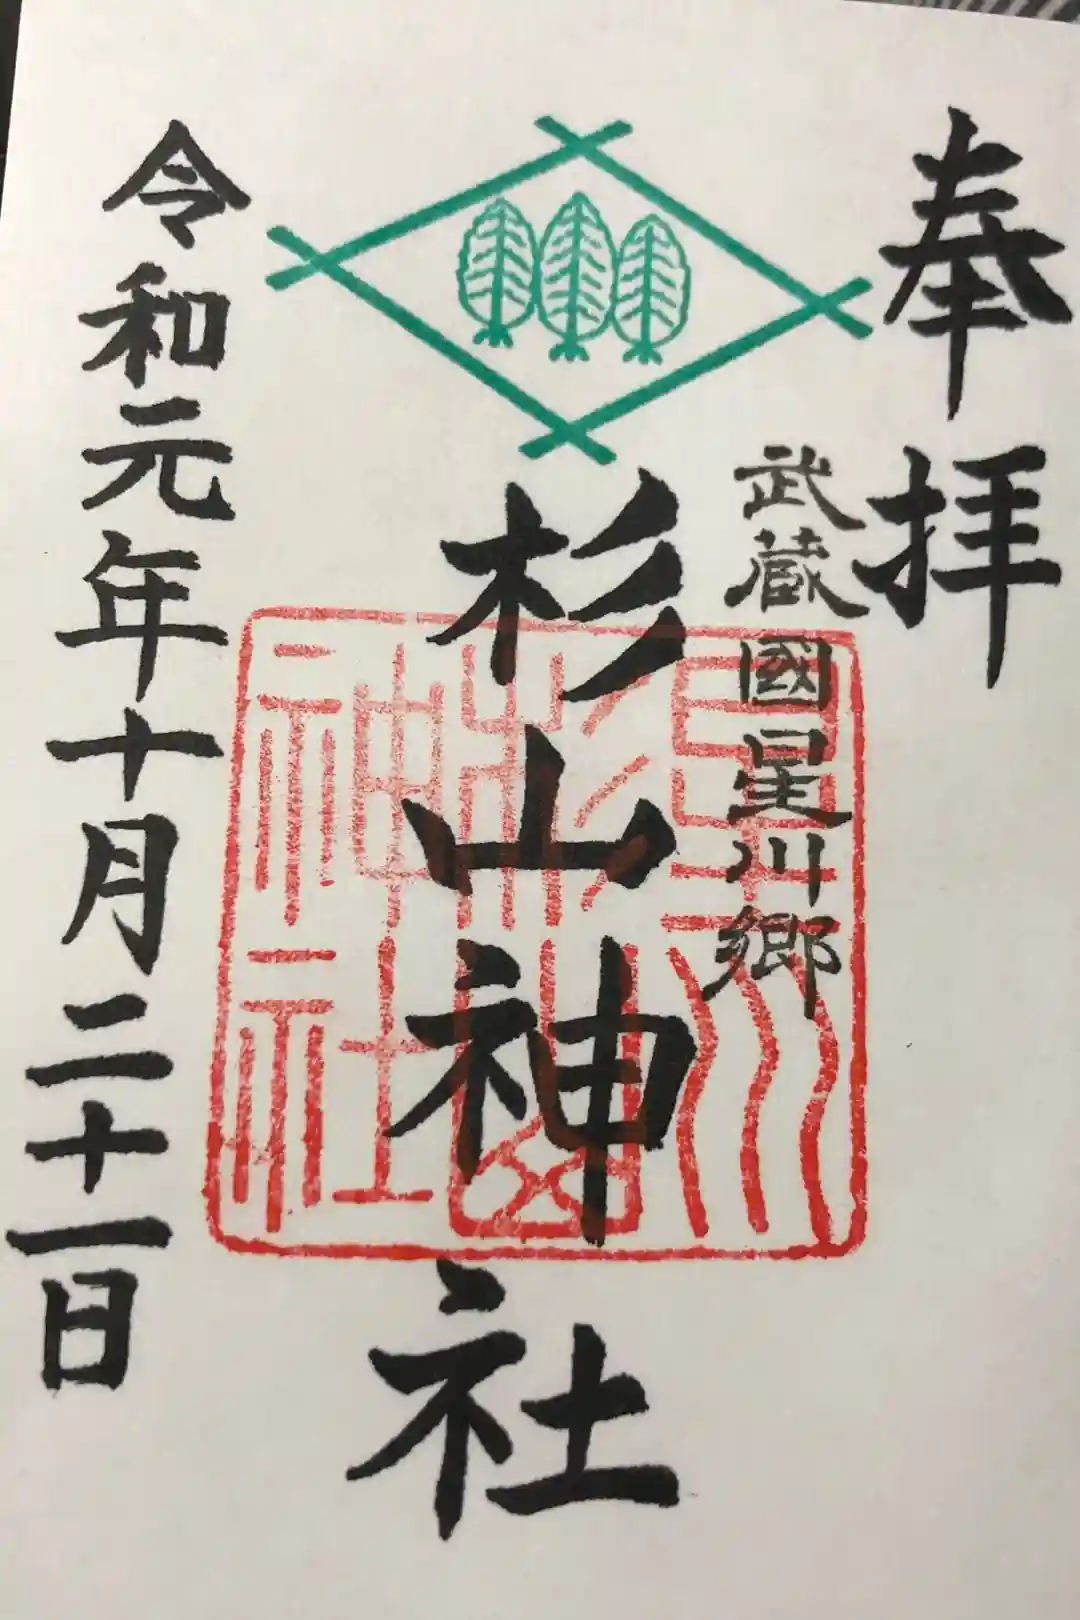 奉拝
武蔵國星川郷
杉山神社
星川杉山神社
令和元年十月二十一日